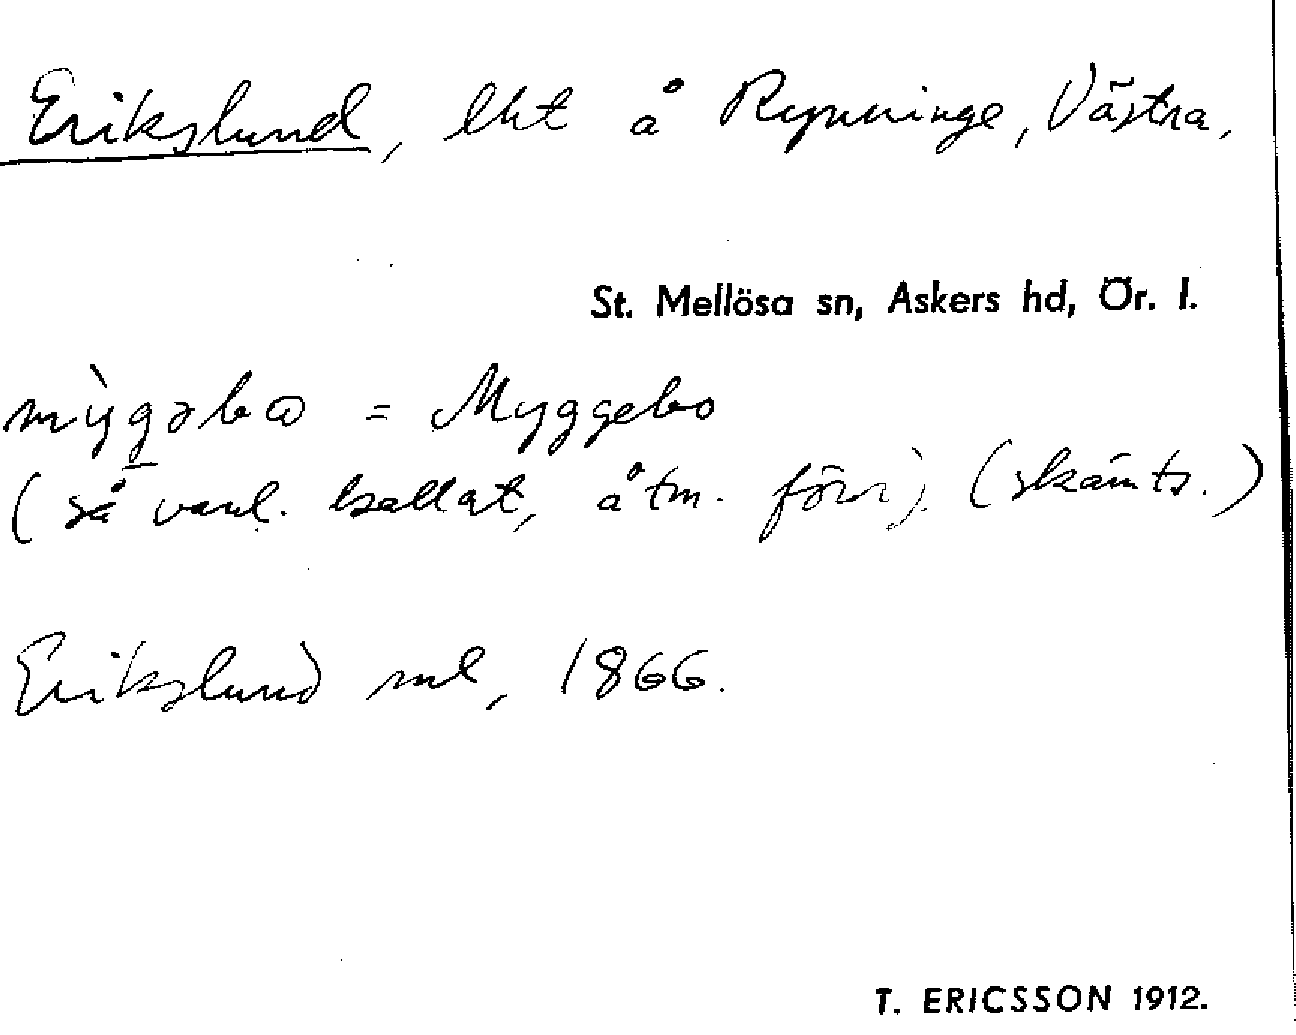 Erikslund, lht å Rynninge, Västra,
St. Mellösa sn, Askers hd, Ör. l.
mỳgəbω = Myggebo
(så vanl. kallat, åtm. förr). (skämts.)
Erikslund ml, 1866.
T. ERICSSON 1912.